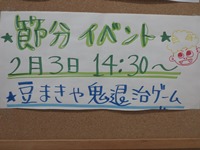 ★節分イベント★
2月3日 14:30～
★豆まきや鬼退治ゲーム